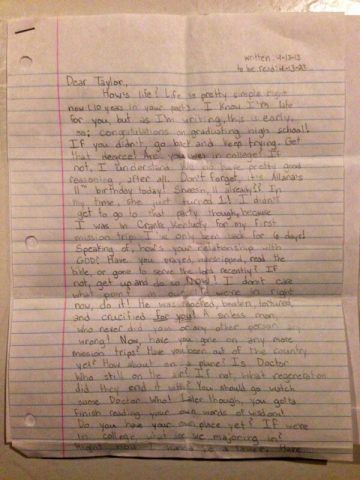 written: 4-13-13
to be read: 4-13-23
Dear Taylor,
How's life? Life is pretty simple right
now (10 years in your past). I know I'm late
for you, but as I'm writing, this is early,
so; congratulations on graduating high school!
If you didn't, go back and keep trying. Get
that degree! Are you in college? If
not, I understand. We have pretty good
reasoning, after all. Don't forget, it's
11th birthday today! Sheesh, 11 already?! In
my time, she just turned 1! I didn't
get to go to that party though, because
I was in Kentucky for my first
mission trip. I've only been back for 6 days!
Speaking of, how's your relationship with
GOD? Have you prayed, worshipped, read the
bible, or gone to serve the lord recently? If
not, get up and do so Now! I don't care
what point in our life we're in right
now, do it! He was beaten, tortured
and crucified for you! A sinless man,
who never did you or any other person any
wrong! Now, have you gone on any more
mission trips? Have you been out of the country
yet? How about on a plane? Is Doctor
Who still on the air? If not, what regeneration
did they end it with? You should go watch
some Doctor Who! Later though, you gotta
finish reading your own words of wisdom!
Do you have your own place yet? If we're
in college, what are we majoring in?
Right now I